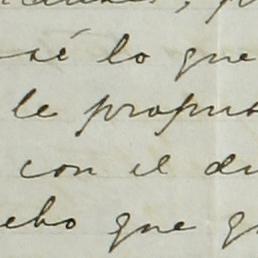 sé lo que
le propus
con el di
ebo que q